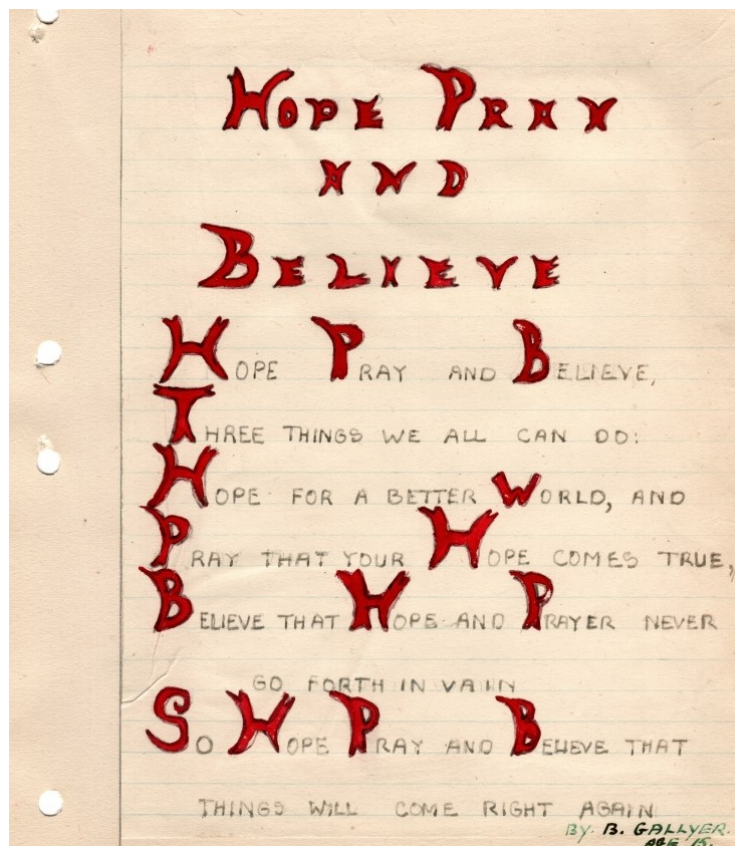 HOPE PRAY
AND
BELIEVE
HOPE PRAY AND BELIEVE,
THREE THINGS WE ALL CAN DO:
HOPE FOR A BETTER WORLD, AND
PRAY THAT YOUR HOPE COMES TRUE,
BELIEVE THAT HOPE AND PRAYER NEVER
GO FORTH IN VAIN
SO HOPE PRAY AND BELIEVE THAT
THINGS WILL COME RIGHT AGAIN
BY. B. GALLYER.
AGE 15.